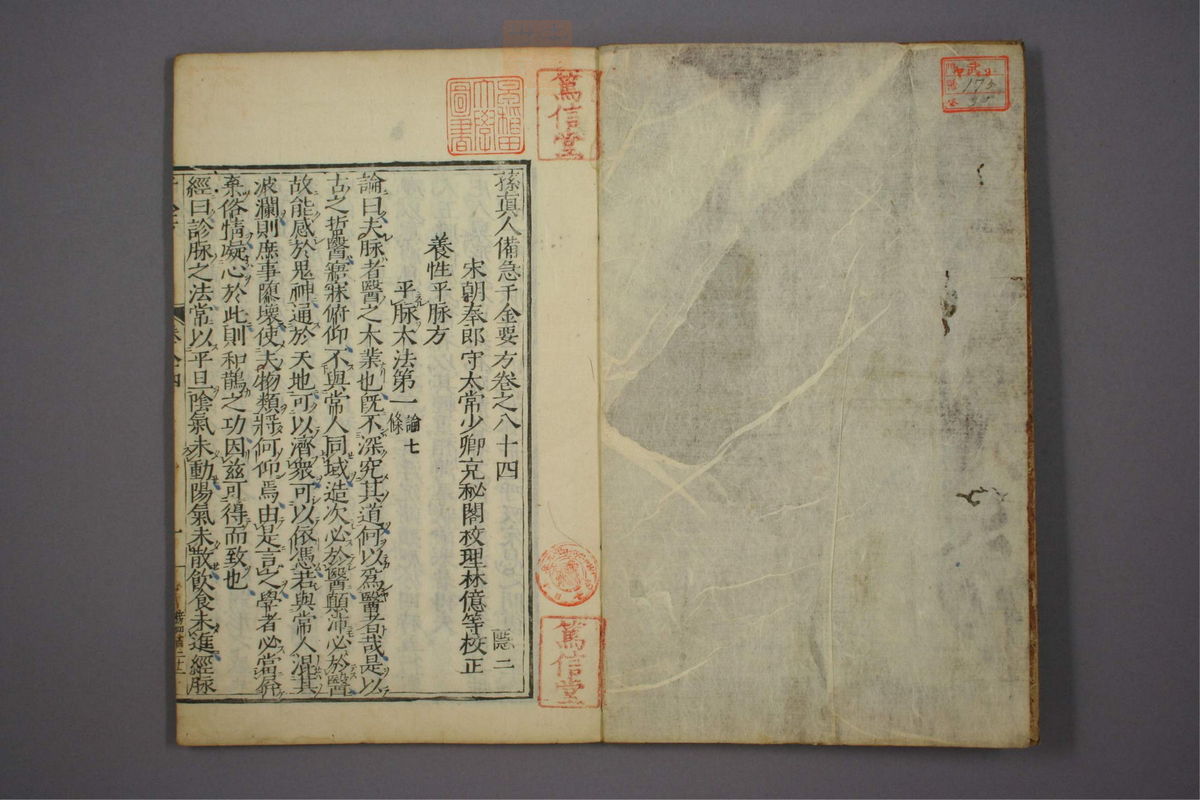 孫真人備急千金要方卷之八十四
隱二
宋朝奉郎守太常少卿充秘閣校理林億等校正
養性平脉方
平脉大法第一
論七條
論曰夫脉者醫之大業也既不深究其道何以爲醫者哉是以
古之哲醫寤寐俯仰不與常人同域造次必於醫顛沛必於醫
故能感於鬼神通於天地可以濟衆可以依憑若與常人混其
波瀾則庶事隳壞使夫物類將何仰焉由是言之學者必當屏
棄俗情凝心於此則和鵲之功因兹可得而致也
經曰診脉之法常以平旦陰氣未動陽氣未散飲食未進經脉
篤信堂
篤信堂
圖書
175